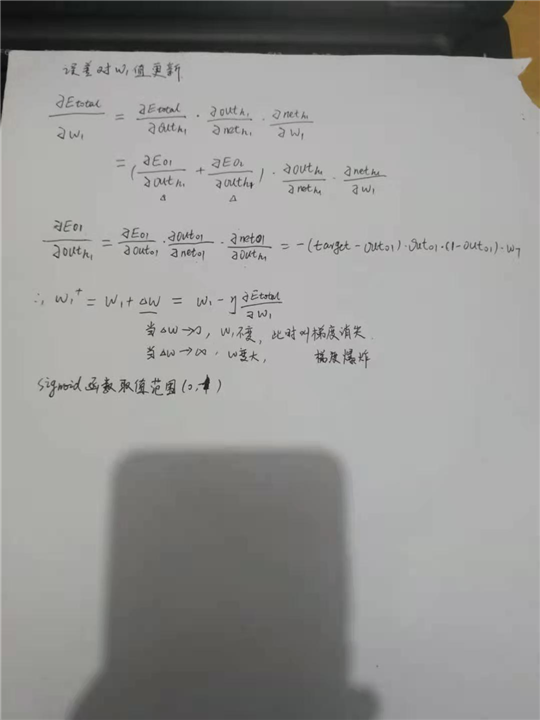 误差对w₁值更新
∂Etotal/∂w₁ = ∂Etotal/∂outh₁ · ∂outh₁/∂neth₁ · ∂neth₁/∂w₁
= (∂E01/∂outh₁ + ∂E02/∂outh₁) · ∂outh₁/∂neth₁ · ∂neth₁/∂w₁
∂E01/∂outh₁ = ∂E01/∂out01 · ∂out01/∂net01 · ∂net01/∂outh₁ = -(target - out01)·out01·(1-out01)·w₇
∴ w₁⁺ = w₁ + Δw = w₁ - η ∂Etotal/∂w₁
当Δw→0, w₁不变, 此时叫梯度消失
当Δw→∞, w变大, 梯度爆炸
Sigmoid函数取值范围(0,1)